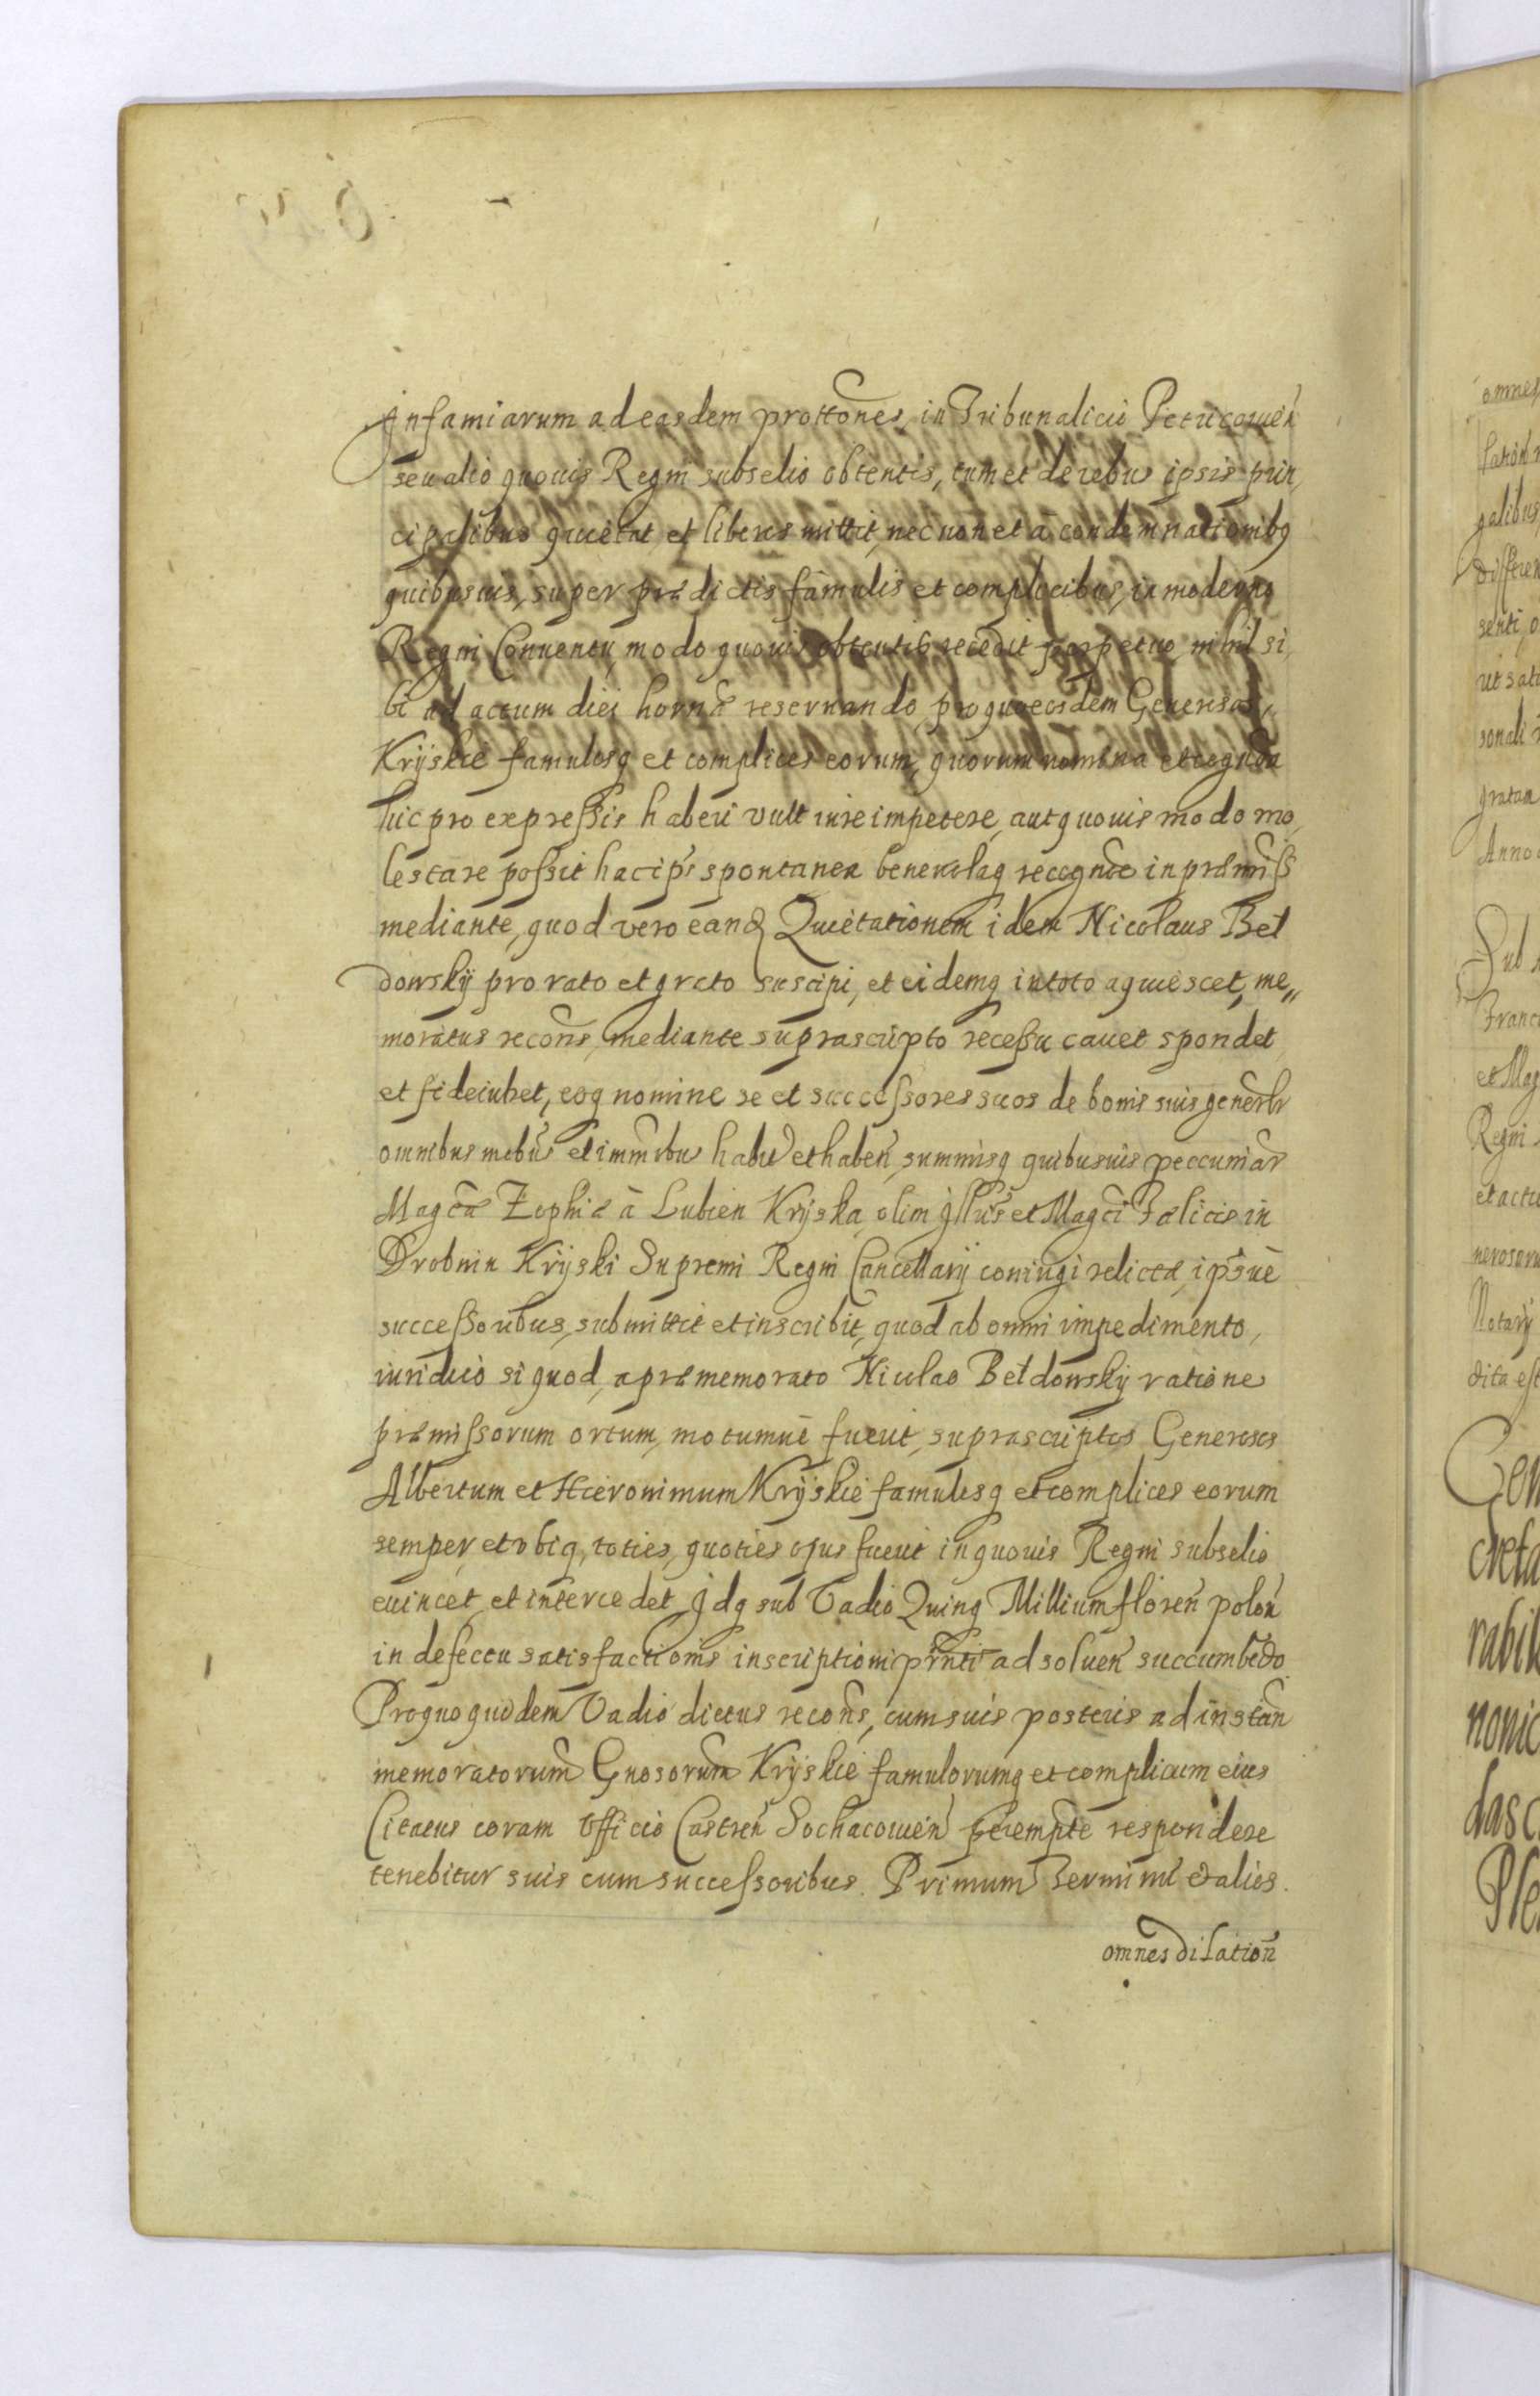 Infamiarum ad easdem prottones, in Tribunalicio Petricouien
seu alio quouis Regni subselio obtentis, tum et de rebus ipsis prin,
cipalibus quietat et liberos mittit, nec non et à condemnationibq
quibusuis, super prædictis famulis et complicibus, in moderno
Regni Conuentu, modo quouis obtentis recedit perpetuo, nihil si,
bi ad actum diei horna reseruando, pro quo eosdem Generosos,
Kryskie famulosq et complices eorum, quorum nomina et cognoa
hic pro expreſsis haberi vult iure impetere, aut quouis modo mo,
lestare poſsit hac ips spontanea beneuolaq recognoe in præmiſs
mediante, quod vero eand Quietationem idem Nicolaus Bel
dowskÿ pro rato et grato suscipi, et eidemq in toto aquiescet, me,,
moratus recons, mediante suprascripto receſsu cauet spondet
et fideiubet, eoq nomine se et succeſsores suos de bonis suis generlr
omnibus mobus et immobus habit et haben, summisq quibusuis peccuniar
Magcæ Zophiæ à Lubien Kryska, olim Jllus et Magci Fælicis in
Drobnin Kryski Supremi Regni Cancellarÿ coniugi relictæ, ipsuè
succeſsoribus, submittit et inscribit, quod ab omni impedimento,
iuridico si quod, a præmemorato Nicolao Beldowskÿ ratione
præmiſsorum ortum, motumuè fuerit, suprascriptos Generosos
Albertum et Hieronimum Kryskie famulosq et complices eorum
semper, et vbiq, toties, quoties opus fuerit in quouis Regni subselio
euincet et intercedet Jdq sub Vadio Quinq Millium floren polon
in defectu satisfactionis inscriptioni prnti ad soluen succumbedo
Pro quo quodem Vadio dictus recons, cum suis posteris ad instan
memoratorum Gnosorum Kryskie famulorumq et complicum eius
Citatus coram Officio Castren Sochacouien peremptè respondere
tenebitur suis cum succeſsoribus. Primum Termini et alios.
omnes dilation